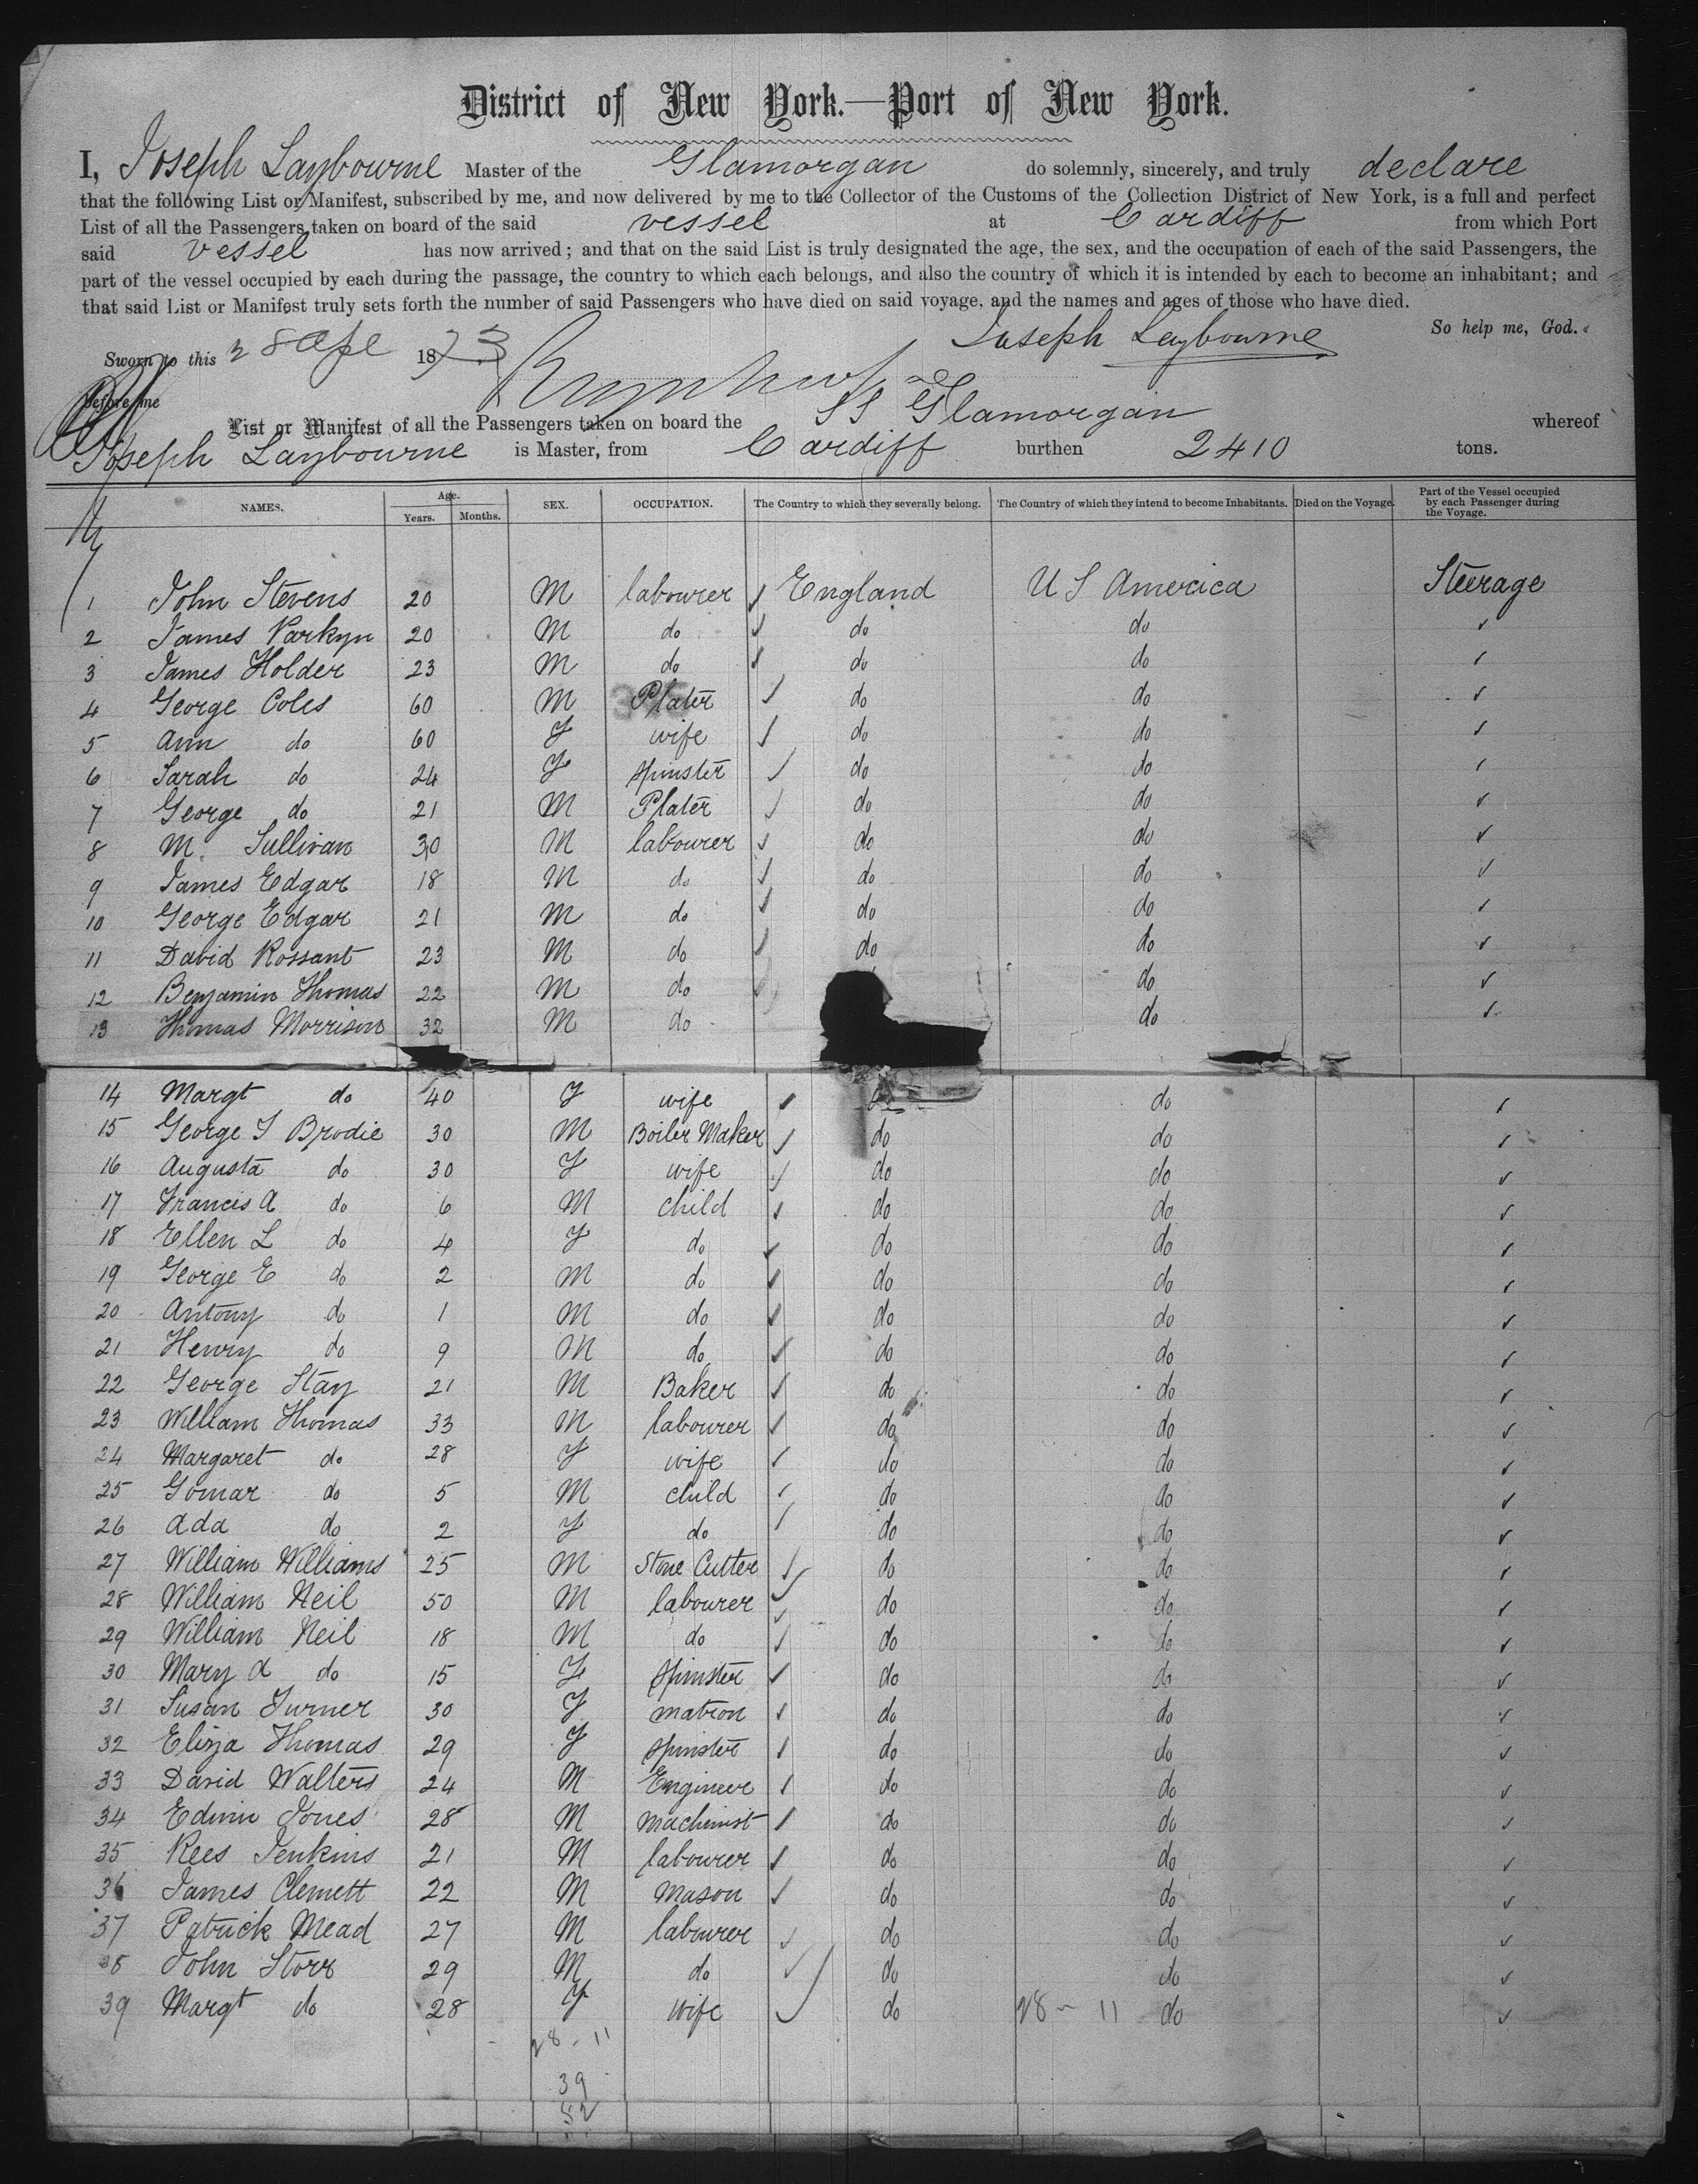 District of New York.—Port of New York.
I, Joseph Laybourne Master of the Glamorgan do solemnly, sincerely, and truly declare
that the following List or Manifest, subscribed by me, and now delivered by me to the Collector of the Customs of the Collection District of New York, is a full and perfect
List of all the Passengers taken on board of the said vessel at Cardiff from which Port
said vessel has now arrived; and that on the said List is truly designated the age, the sex, and the occupation of each of the said Passengers, the
part of the vessel occupied by each during the passage, the country to which each belongs, and also the country of which it is intended by each to become an inhabitant; and
that said List or Manifest truly sets forth the number of said Passengers who have died on said voyage, and the names and ages of those who have died.
So help me, God.
Sworn to this 28 1873 Joseph Laybourne
before me
List or Manifest of all the Passengers taken on board the SS Glamorgan whereof
Joseph Laybourne is Master, from Cardiff burthen 2410 tons.
NAMES. Age. Years. Months. SEX. OCCUPATION. The Country to which they severally belong. The Country of which they intend to become Inhabitants. Died on the Voyage. Part of the Vessel occupied by each Passenger during the Voyage.
1 John Stevens 20 M labourer ✓ England U S America Steerage
2 James Parkyn 20 M do ✓ do do ✓
3 James Holder 23 M do ✓ do do ✓
4 George Coles 60 M Plater ✓ do do ✓
5 Ann do 60 F wife ✓ do do ✓
6 Sarah do 24 F spinster ✓ do do ✓
7 George do 21 M Plater ✓ do do ✓
8 M. Sullivan 30 M labourer ✓ do do ✓
9 James Edgar 18 M do ✓ do do ✓
10 George Edgar 21 M do ✓ do do ✓
11 David Rossant 23 M do ✓ do do ✓
12 Benjamin Thomas 22 M do ✓ do ✓
13 Thomas Morrison 32 M do do ✓
14 Margt do 40 F wife ✓ do do ✓
15 George J Brodie 30 M Boiler Maker ✓ do do ✓
16 Augusta do 30 F wife ✓ do do ✓
17 Francis A do 6 M child ✓ do do ✓
18 Ellen L do 4 F do ✓ do do ✓
19 George E do 2 M do ✓ do do ✓
20 Antony do 1 M do ✓ do do ✓
21 Henry do 9 M do ✓ do do ✓
22 George Stay 21 M Baker ✓ do do ✓
23 William Thomas 33 M labourer ✓ do do ✓
24 Margaret do 28 F wife ✓ do do ✓
25 Gomar do 5 M child ✓ do do ✓
26 Ada do 2 F do ✓ do do ✓
27 William Williams 25 M Stone Cutter ✓ do do ✓
28 William Neil 50 M labourer ✓ do do ✓
29 William Neil 18 M do ✓ do do ✓
30 Mary A do 15 F spinster ✓ do do ✓
31 Susan Turner 30 F matron ✓ do do ✓
32 Eliza Thomas 29 F spinster ✓ do do ✓
33 David Walters 24 M Engineer ✓ do do ✓
34 Edwin Jones 28 M machinist ✓ do do ✓
35 Rees Jenkins 21 M labourer ✓ do do ✓
36 James Clemett 22 M mason ✓ do do ✓
37 Patrick Mead 27 M labourer ✓ do do ✓
38 John Storr 29 M do ✓ do do ✓
39 Margt do 28 F wife ✓ do 28 - 11 do ✓
28 - 11
39
52